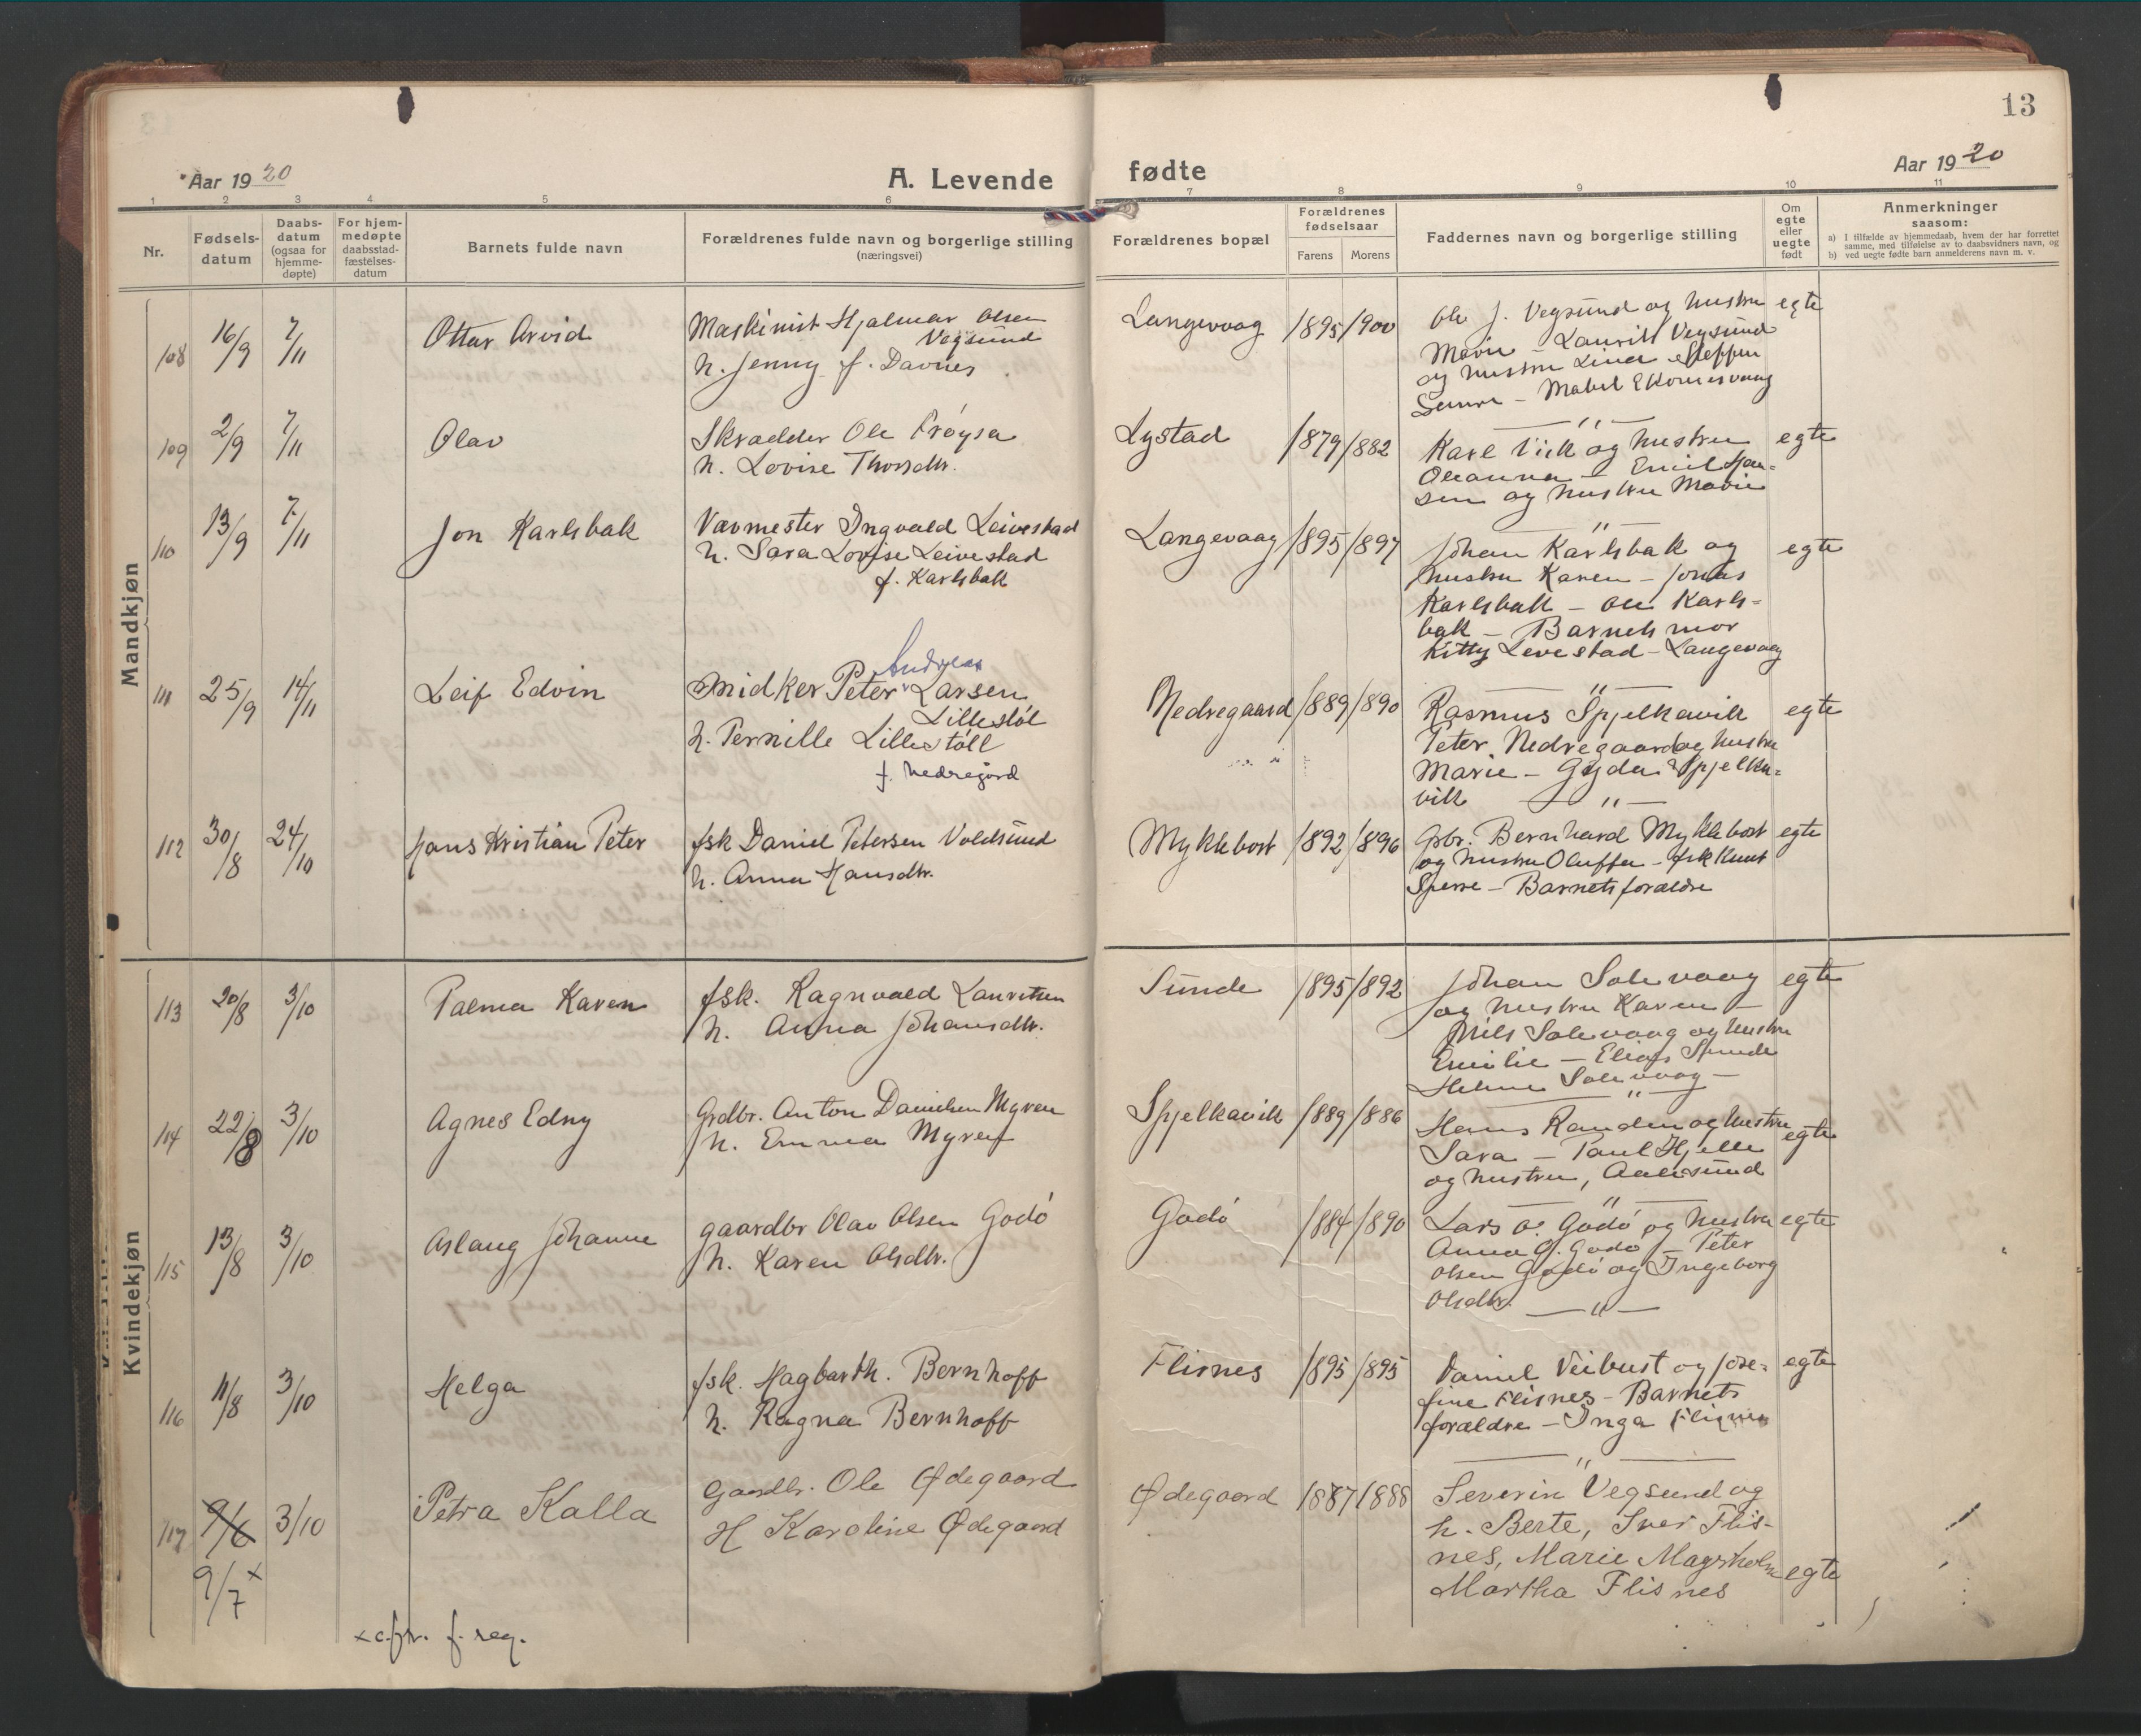 13
Aar 1920
A. Levende fødte
Aar 1920
1 2 3 4 5 6 7 8 9 10 11
Nr.
Fødsels-
datum
Daabs-
datum
(ogsaa for
hjemme-
døpte)
For hjem-
medøpte
daabsstad-
fæstelses-
datum
Barnets fulde navn
Forældrenes fulde navn og borgerlige stilling
(næringsvei)
Forældrenes bopæl
Forældrenes
fødselsaar
Farens Morens
Faddernes navn og borgerlige stilling
Om
egte
eller
uegte
født
Anmerkninger
saasom:
a) I tilfælde av hjemmedaab, hvem der har forrettet
samme, med tilføielse av to daabsvidners navn, og
b) ved uegte fødte barn anmelderens navn m. v.
Mandkjøn
108 16/9 7/11 Ottar Arvid
Maskinist Hjalmar Olsen
Vegsund
h. Jenny f. Davnes
Langevaag 1895 1900
Ole J. Vegsund og hustru
Marie - Laurits Vegsund
og hustru Lina
- Mabel Ekornesvaag
egte
109 2/9 7/11 Olav
Skrædder Ole Frøysa
h. Lovise Thorsdtr.
Lystad 1879 1882
Karl Vik og hustru
Oleanna - Emil Han-
sen og hustru Marie
egte
110 13/9 7/11 Jon Karlsbak
Vævmester Ingvald Leivestad
h. Sara Lovise Leivestad
f. Karlsbak
Langevaag 1895 1897
Johan Karlsbak og
hustru Karen - Jonas
Karlsbak - Ole Karls-
bak - Barnets mor
Kitty Levestad - Langevaag
egte
111 25/9 14/11 Leif Edvin
Andreas
Snidker Peter Larsen
Lillestøl
h. Pernille Lillestøll
f. Nedregård
Nedregaard 1889 1890
Rasmus Spjelkavik
Peter Nedregaard og hustru
Marie - Gyda Spjelka-
vik
egte
112 30/8 24/10 Hans Kristian Peter
fsk Daniel Petersen Voldsund
h. Anna Hansdtr.
Myklebost 1892 1896
Gbr. Bernhard Myklebost
og hustru Oluffa - fsk Knut
Sperre - Barnets forældre
egte
Kvindekjøn
113 20/8 3/10 Palma Karen
fsk. Ragnvald Lauritsen
h. Anna Johansdtr.
Sunde 1895 1892
Johan Solevaag
og hustru Karen -
Nils Solevaag og hustru
Emilie - Elias Sunde
Solevaag -
egte
114 22/8 3/10 Agnes Edny
Grdbr. Anton Danielsen Myren
h. Emma Myren
Spjelkavik 1889 1886
Hans Randen og hustru
Sara - Paul Hjelle
og hustru, Aalesund
egte
115 13/8 3/10 Aslaug Johanne
gaardbr Olav Olsen Godø
h. Karen Olsdtr.
Godø 1884 1890
Lars O. Godø og hustru
Anna G. Godø - Peter
Olsen Godø og Ingeborg
Olsdtr.
egte
116 11/8 3/10 Helga
fsk. Hagbarth. Bernhoff
h. Ragna Bernhoff
Flisnes 1895 1895
Daniel Veibust og Jose-
fine Flisnes - Barnets
forældre - Inga Flisnes
egte
117 9/6 3/10 Petra Kalla
9/7 x
Gaardbr. Ole Ødegaard
H Karoline Ødegaard
Ødegaard 1887 1888
Severin Vegsund og
h. Berte, Iver Flis-
nes, Marie Magerholm
Martha Flisnes
egte
x c.fr. f. reg.